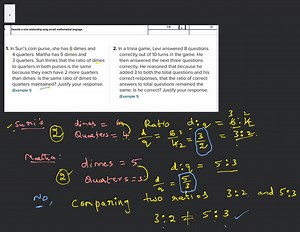 Describe a ratio relationship using correct mathematical language.
1. In Suri's coin purse, she has 6 dimes and
4 quarters. Martha has 5 dimes and
3 quarters. Suri thinks that the ratio of dimes
to quarters in both purses is the same
because they each have 2 more quarters
than dimes. Is the same ratio of dimes to
quarters maintained? Justify your response.
(Example 1)
2. In a trivia game, Levi answered 8 questions
correctly out of 10 turns in the game. He
then answered the next three questions
correctly. He reasoned that because he
added 3 to both the total questions and his
correct responses, that the ratio of correct
answers to total questions remained the
same. Is he correct? Justify your response.
(Example 1)
Suri's dimes = 6 Ratio d:q = 6:4
2 Quarters = 4 d/q = 6/4 = 3/2 = 3:2
Martha:
dimes = 5 d:q = 5:3
2 Quarters = 3 d/q = 5/3
No, Comparing two ratios 3:2 and 5:3
3:2 ≠ 5:3